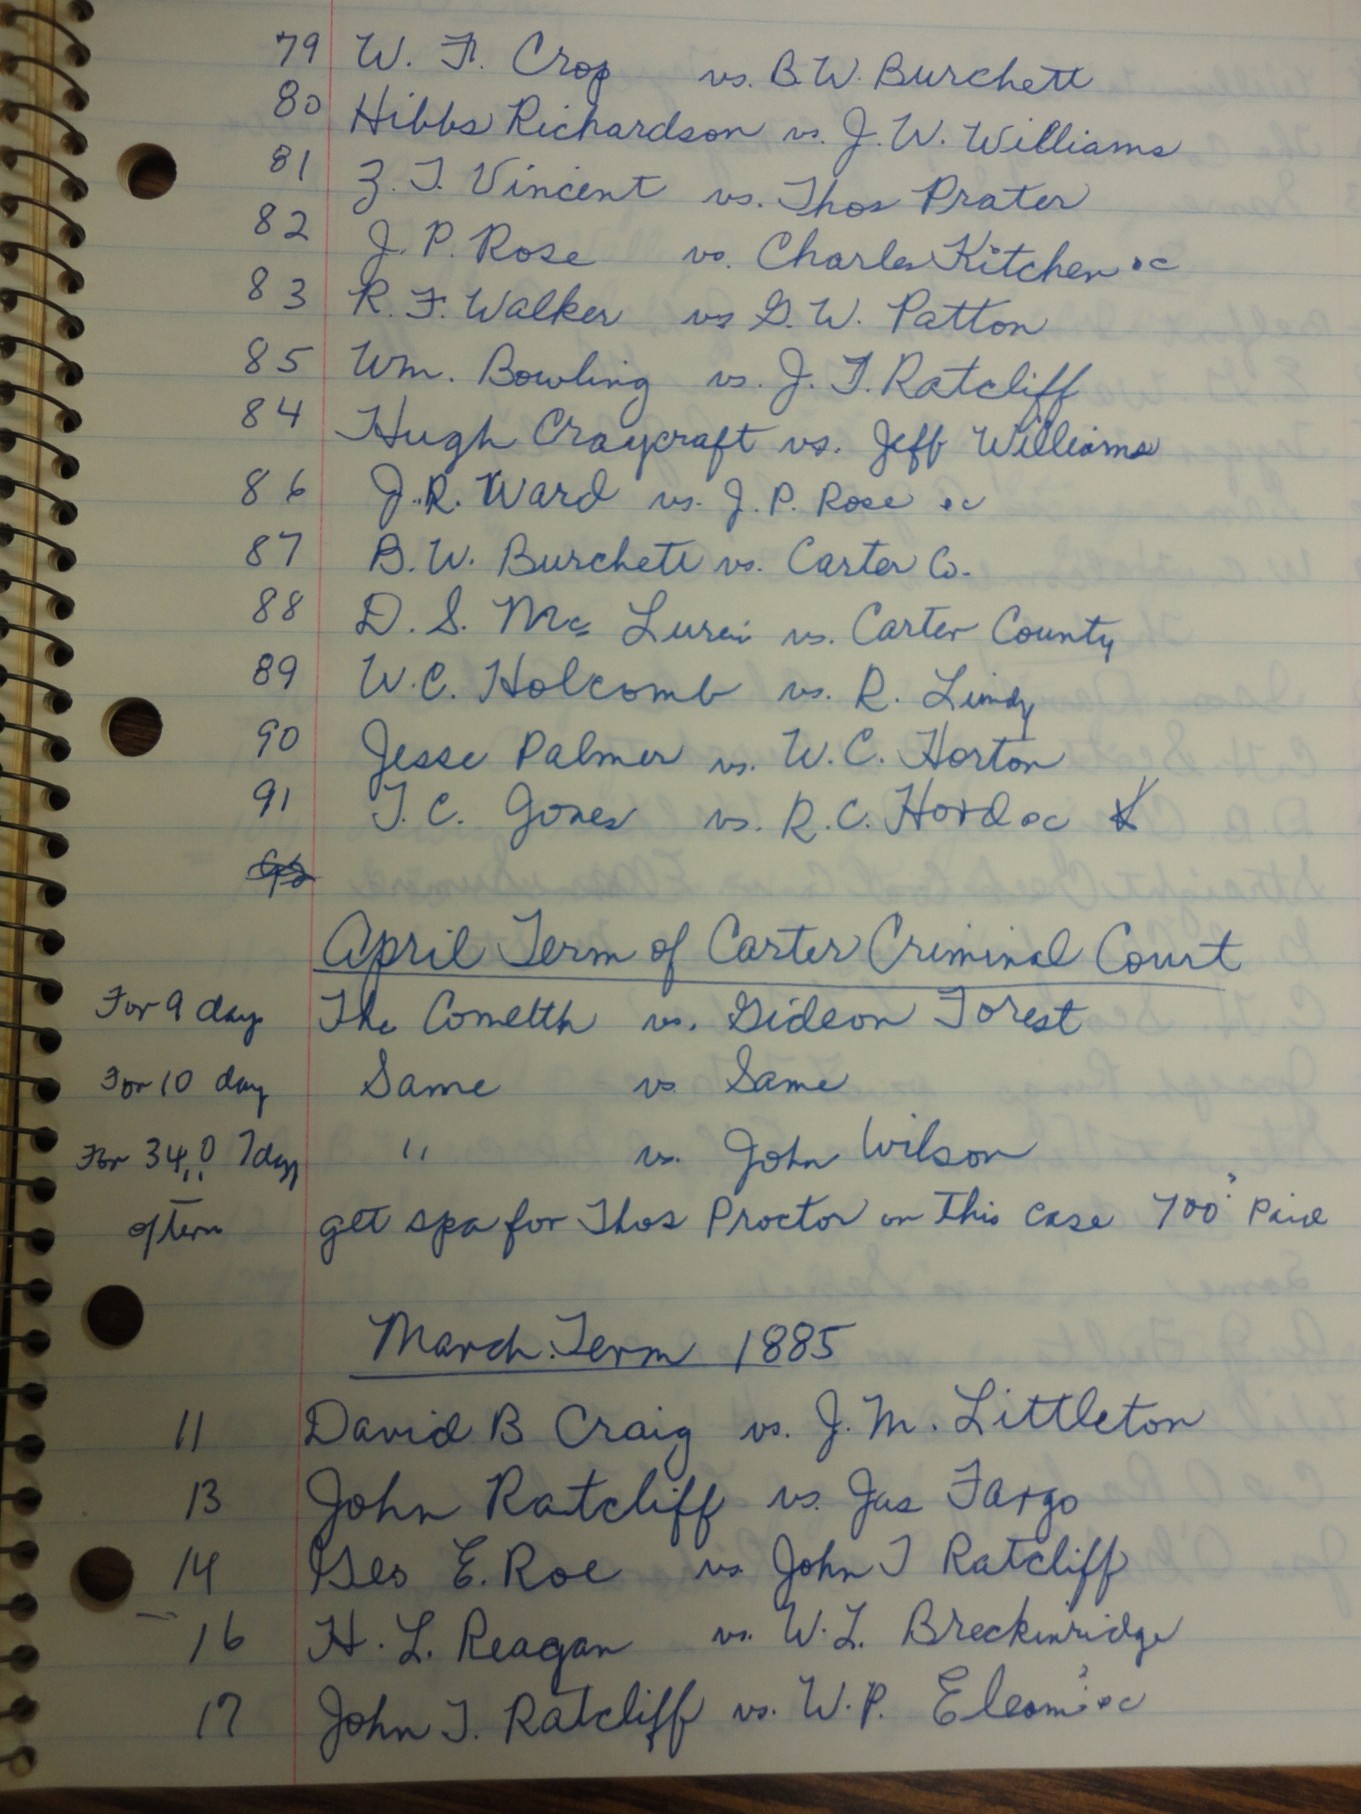 79 W. F. Crop vs. B.W. Burchett
80 Hibbs Richardson vs. J. W. Williams
81 Z. T. Vincent vs. Thos Prater
82 J. P. Rose vs. Charles Kitchen &c
83 R. F. Walker vs G. W. Patton
85 Wm. Bowling vs. J. T. Ratcliff
84 Hugh Craycraft vs. Jeff Williams
86 J. R. Ward vs. J. P. Rose &c
87 B. W. Burchett vs. Carter Co.
88 D. S. Mc vs. Carter County
89 W. C. Holcomb vs. R.
90 Jesse Palmer vs. W. C. Horton
91 T. C. Jones vs. R. C. Hord &c
April Term of Carter Criminal Court
For 9 day The Comelth vs. Gideon Forest
For 10 day Same vs. Same
For 7 day " vs. John Wilson
of term get spa for Thos Proctor on This case 700
March Term 1885
11 David B Craig vs. J. M. Littleton
13 John Ratcliff vs. Jas Fargo
14 Geo E. Roe vs John T Ratcliff
16 H. L. Reagan vs. W. L. Breckinridge
17 John T. Ratcliff vs. W. P. &c